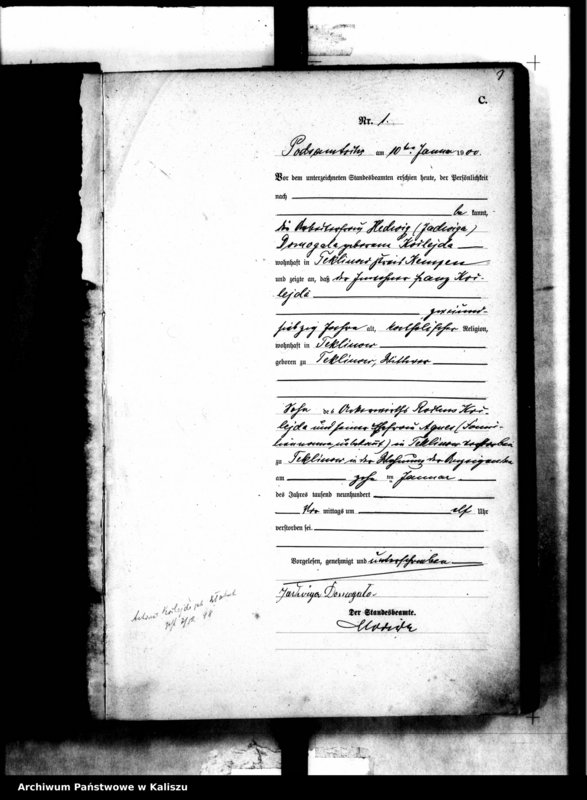 1
C.
Nr. 1.
Podsamtsche am 10ten Januar 1900.
Vor dem unterzeichneten Standesbeamten erschien heute, der Persönlichkeit
nach
be kannt,
die Arbeiterfrau Hedwig (Jadwiga)
Domogala geborene Kozlejda
wohnhaft in Teklinow Kreis Kempen
und zeigte an, daß der Franz Koz-
lejda
zweiund-
siebzig Jahre alt, katholischer Religion,
wohnhaft in Teklinow
geboren zu Teklinow, Wittwer
Sohn des Ackerwirths Koz-
lejda und seiner Ehefrau Agnes (Fami-
lienname unbekannt) in Teklinow verstorben
zu Teklinow in der Wohnung der Anzeigenden
am zehn ten Januar
des Jahres tausend neunhundert
Vor mittags um elf Uhr
verstorben sei.
Vorgelesen, genehmigt und unterschrieben
Jadwiga Domogala
Der Standesbeamte.
Archiwum Państwowe w Kaliszu